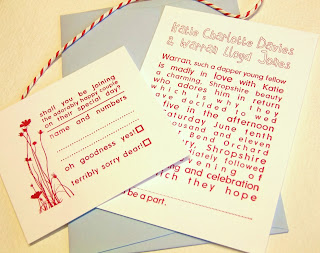 Katie Charlotte Davies
& Warren Lloyd Jones
Warren, such a dapper young fellow
is madly in love with Katie
a charming, Shropshire beauty
who adores him in return
which is why they
ave decided to wed
five in the afternoon
aturday June tenth
ousand and eleven
Bend Orchard
ry, Shropshire
ediately followed
ening of
ing and celebration
ich they hope
be a part.
shall you be joining
the adorably happy couple
on their special day?
name and numbers
oh goodness yes!
terribly sorry dear!